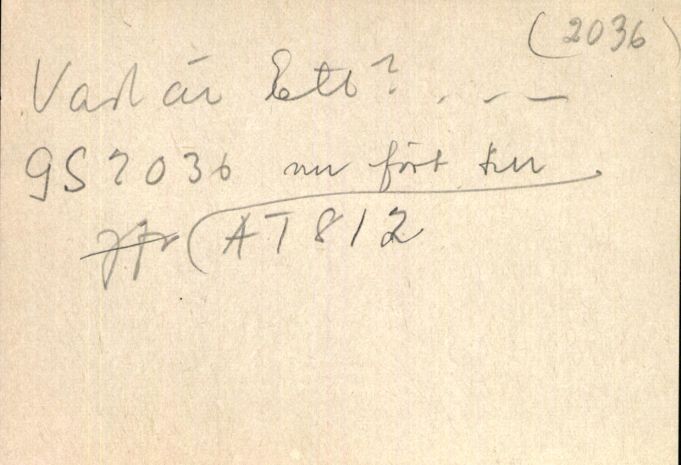 (2036)
Vad är Ett? . _ _ _
GS 2036 nu fört till
jfr (AT 812